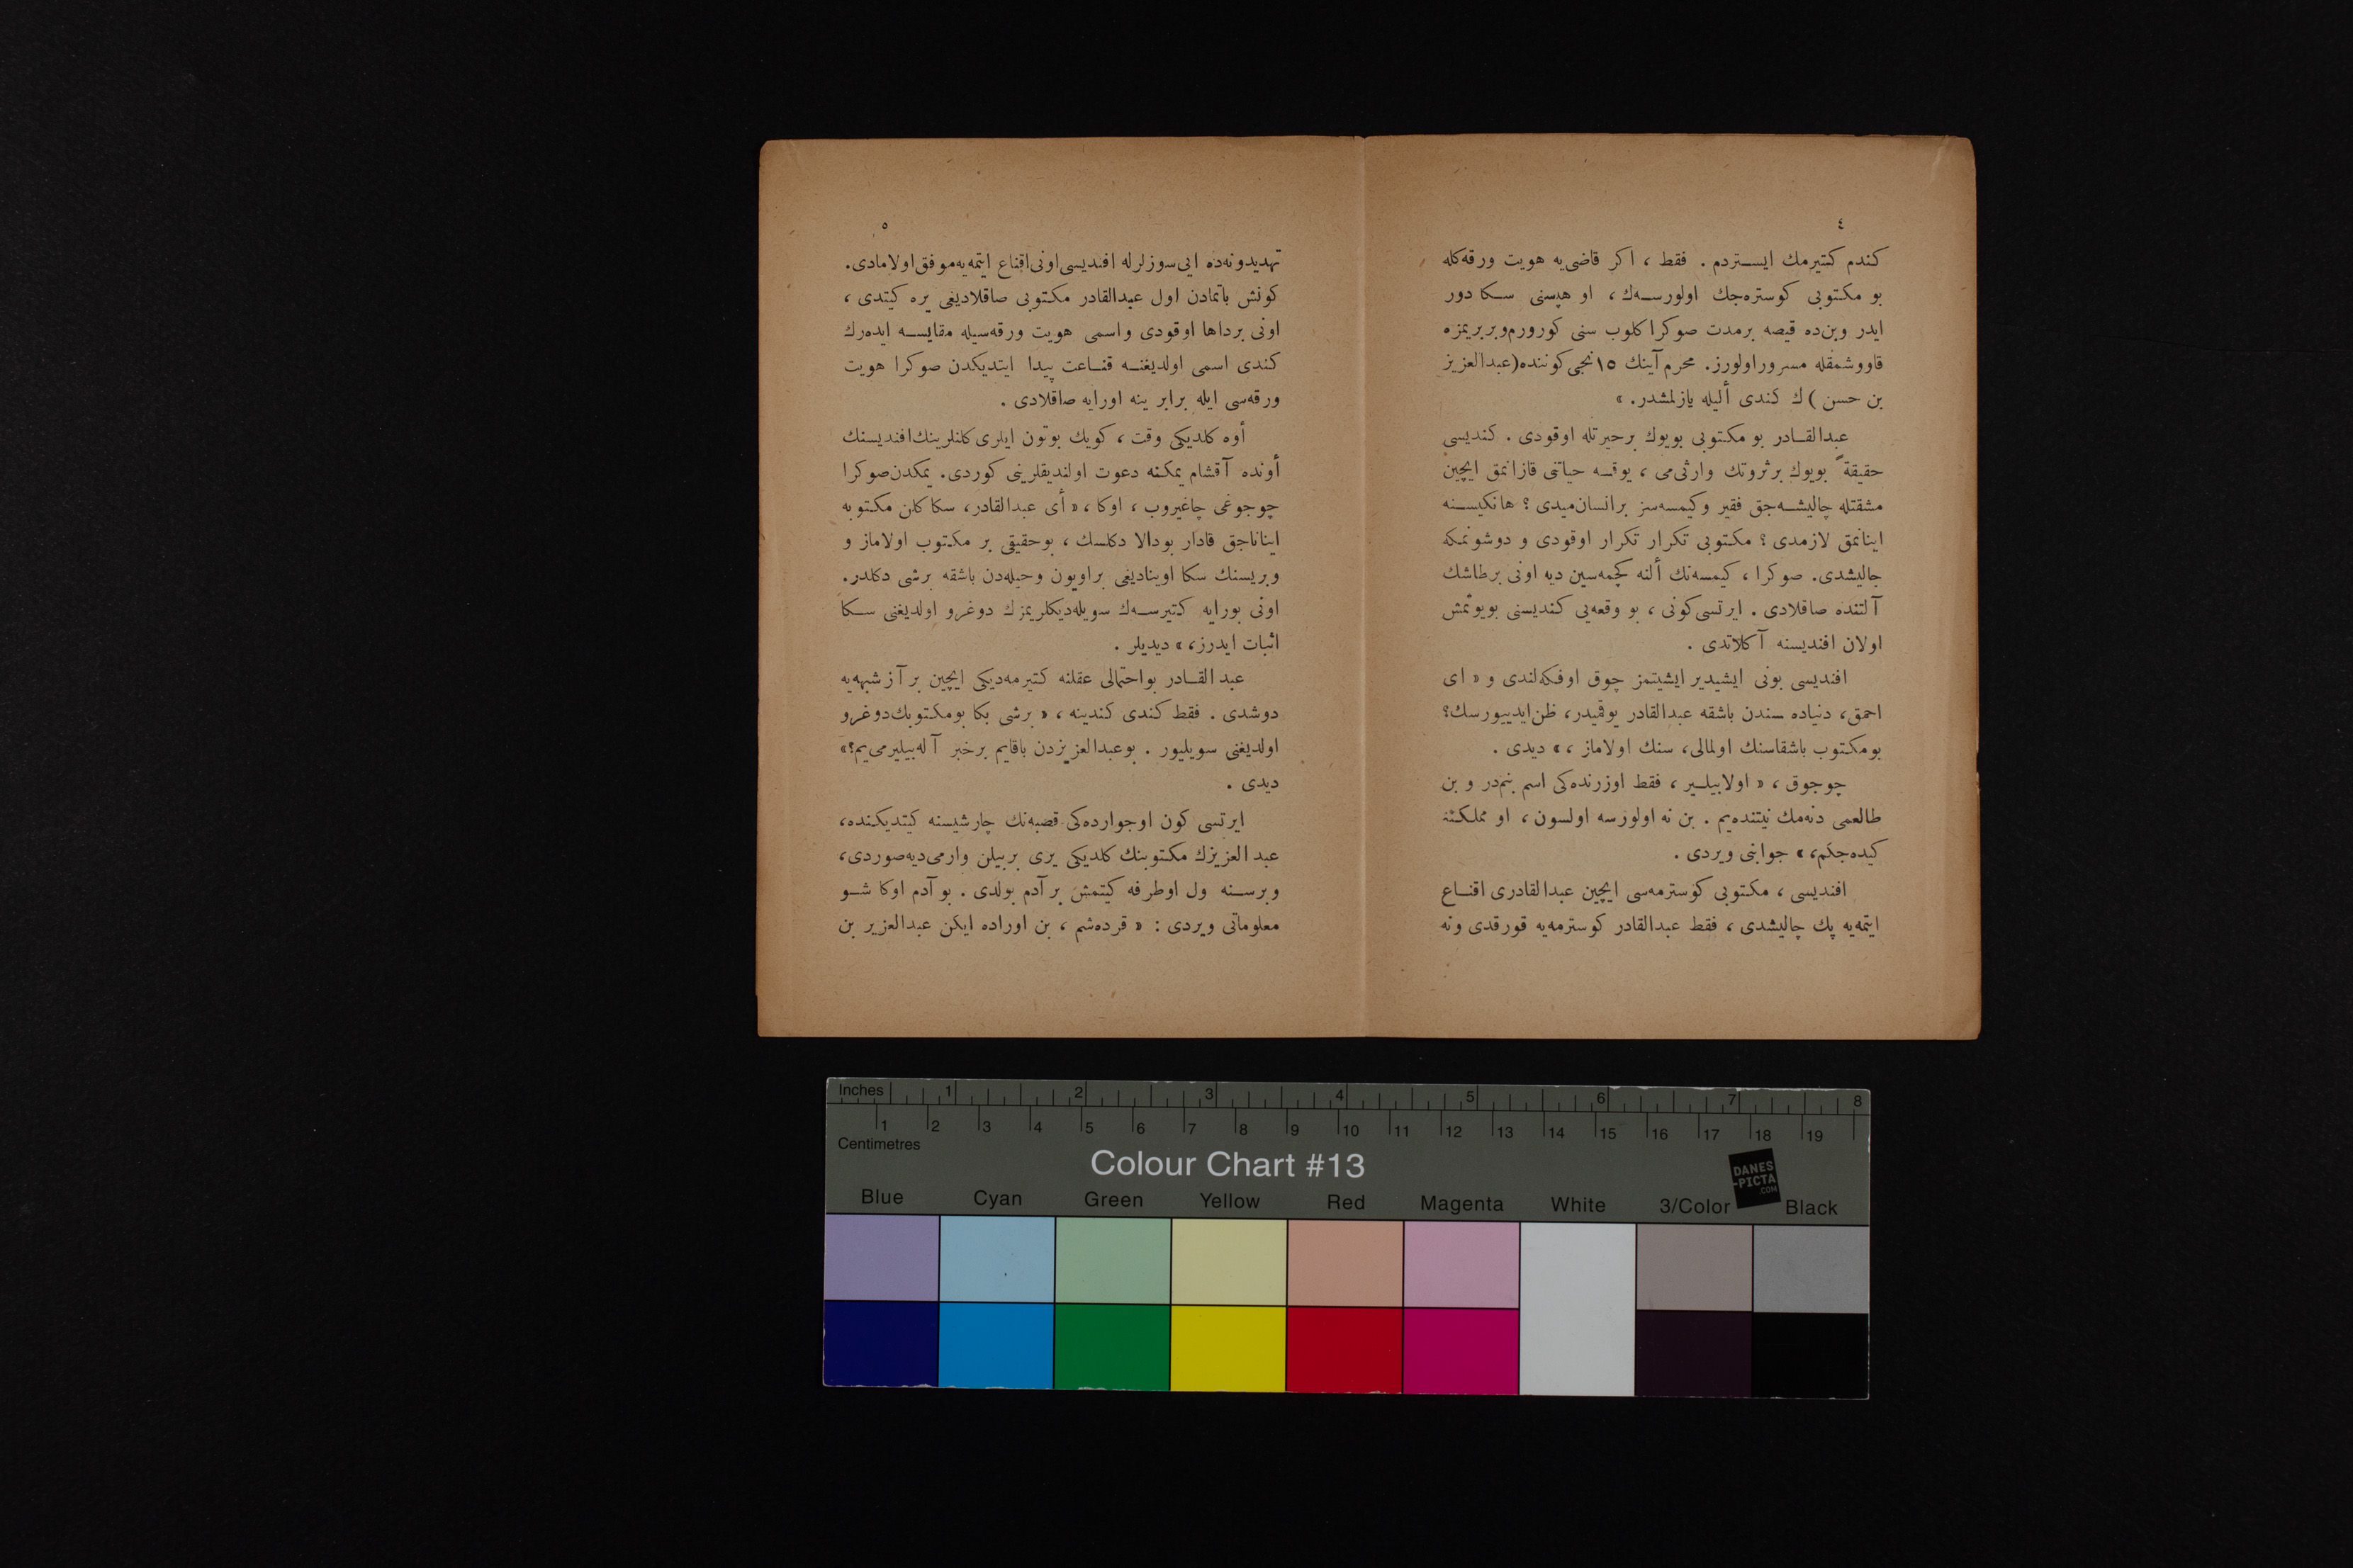 ٤
كندم كتيرمك ايستردم . فقط ، اكر قاضى‌يه هويت ورقه‌كله
بو مكتوبى كوستره‌جك اولورسه‌ك ، او هپسنى سكا دور
ايدر وبن‌ده قيصه برمدت صوكرا كلوب سنى كورورم‌وبربريمزه
قاووشمقله مسرور اولورز. محرم آينك ١٥نجى كوننده(عبدالعزيز
بن حسن )ك كندى أليله يازلمشدر. »
عبدالقادر بو مكتوبى بويوك برحيرتله اوقودى . كنديسى
حقيقةً بويوك برثروتك وارثى‌مى ، يوقسه حياتنى قازانمق ايچين
مشقتله چاليشه‌جق فقير وكيمسه‌سز برانسان‌ميدى ؟ هانكيسنه
اينانمق لازمدى ؟ مكتوبى تكرار تكرار اوقودى و دوشونمكه
چاليشدى. صوكرا ، كيمسه‌نك ألنه كچمه‌سين ديه اونى برطاشك
آلتنده صاقلادى . ايرتسى كونى ، بو وقعه‌يى كنديسنى بويوتمش
اولان افنديسنه آكلاتدى .
افنديسى بونى ايشيدير ايشيتمز چوق اوفكه‌لندى و « اى
احمق، دنياده سندن باشقه عبدالقادر يوقميدر، ظن‌ايدييورسك؟
بومكتوب باشقاسنك اولمالى، سنك اولاماز ، » ديدى .
چوجوق ، « اولابيلير ، فقط اوزرنده‌كى اسم بنمدر و بن
طالعمى دنه‌مك نيتنده‌يم . بن نه اولورسه اولسون ، او مملكته
كيده‌جكم، » جوابنى ويردى .
افنديسى ، مكتوبى كوسترمه‌سى ايچين عبدالقادرى اقناع
ايتمه‌يه پك چاليشدى ، فقط عبدالقادر كوسترمه‌يه قورقدى ونه
٥
تهديدونه‌ده ايى‌سوزلرله افنديسى‌اونى‌اقناع ايتمه‌يه‌موفق‌اولامادى.
كونش باتمادن اول عبدالقادر مكتوبى صاقلاديغى يره كيتدى ،
اونى برداها اوقودى واسمى هويت ورقه‌سيله مقايسه ايده‌رك
كندى اسمى اولديغنه قناعت پيدا ايتديكدن صوكرا هويت
ورقه‌سى ايله برابر ينه اورايه صاقلادى .
أوه كلديكى وقت ، كويك بوتون ايلرى كلنلرينك‌افنديسنك
أونده آقشام يمكنه دعوت اولنديقلرينى كوردى. يمكدن‌صوكرا
چوجوغى چاغيروب ، اوكا ، « أى عبدالقادر، سكا كلن مكتوبه
اينانا‌جق قادار بودالا دكلسك ، بوحقيقى بر مكتوب اولاماز و
وبريسنك سكا اويناديغى براويون وحيله‌دن باشقه برشى دكلدر.
اونى بورايه كتيرسه‌ك سويله‌ديكلريمزك دوغرو اولديغنى سكا
اثبات ايدرز، » ديديلر .
عبدالقادر بواحتمالى عقلنه كتيرمه‌ديكى ايچين بر آز شبهه‌يه
دوشدى . فقط كندى كندينه ، « برشى بكا بومكتوبك‌دوغرو
اولديغنى سويليور . بوعبدالعزيزدن باقايم برخبر آله‌بيليرمى‌يم؟»
ديدى .
ايرتسى كون اوجوارده‌كى قصبه‌نك چارشيسنه كيتديكنده،
عبدالعزيزك مكتوبنك كلديكى يرى بربيلن وارمى‌ديه‌صوردى،
وبرسنه ول اوطرفه كيتمش بر آدم بولدى . بو آدم اوكا شو
معلوماتى ويردى : « قرده‌شم ، بن اوراده ايكن عبدالعزير بن
Inches 1 2 3 4 5 6 7 8
1 2 3 4 5 6 7 8 9 10 11 12 13 14 15 16 17 18 19
Centimetres
Colour Chart #13
DANES
-PICTA
.COM
Blue Cyan Green Yellow Red Magenta White 3/Color Black